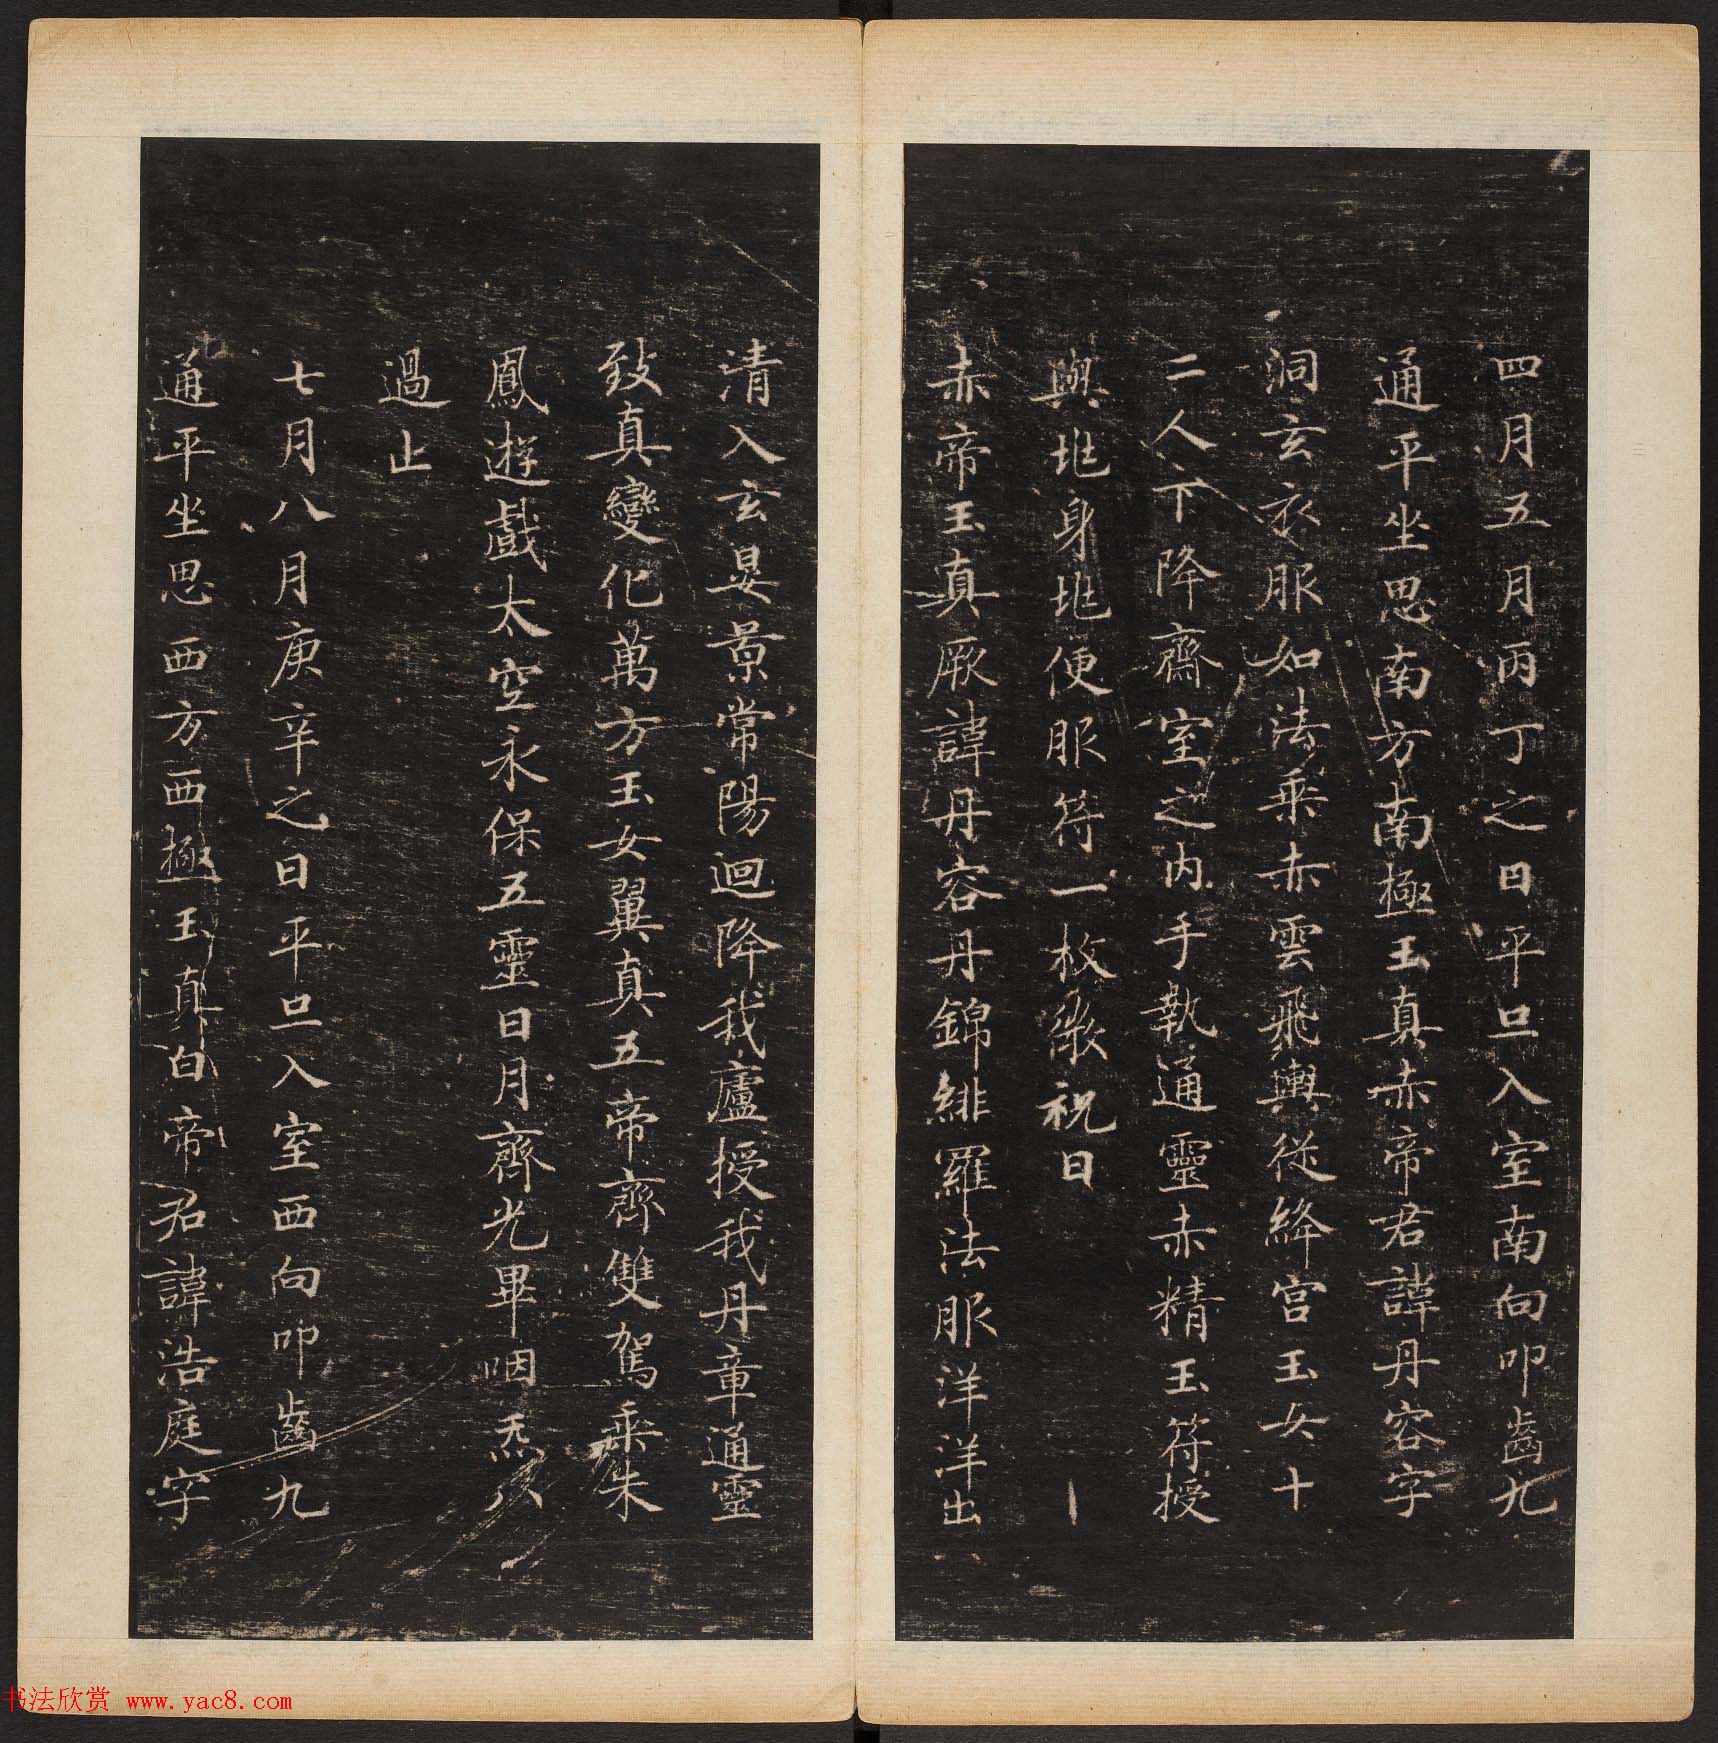 四月五月丙丁之日平旦入室南向叩齒九
通平坐思南方南極玉真赤帝君諱丹容字
洞玄衣服如法乘赤雲飛輿從絳宮玉女十
二人下降齋室之内手執通靈赤精玉符授
與地身地便服符一枚微祝曰
赤帝玉真厥諱丹容丹錦緋羅法服洋洋出
清入玄晏景常陽迴降我廬授我丹章通靈
致真變化萬方玉女翼真五帝齊雙駕乘朱
鳳遊戲太空永保五靈日月齊光畢咽炁八
過止
七月八月庚辛之日平旦入室西向叩齒九
通平坐思西方西極玉真白帝君諱浩庭字
书法欣赏 www.yac8.com